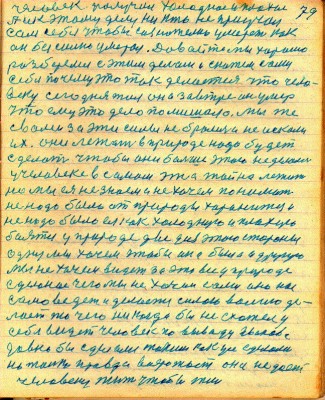 человек получил холодное и плохое 79
Мы к этому делу никто не приучил
сам себя чтобы сознательно умереть как
он бессильно умирал. Давай мы хорошо
разберемся с этим делом и скажем сами
себе почему это так делается что чело-
век сегодня жил она завтра он умер
что ему это дело помешало. мы же
с вами за эти силы не брались и не искали
их. они лежат в природе надо будет
сделать чтобы они больше этого не делали
у человека в самом эта тайна лежит
но мы ей не знаем и не хочем понимать
не надо было от природы хорониться и
не надо было ей как холодную и плохую
бояться у природе две для этого стороны
одну мы хочем чтобы она была а другую
мы не хочем видеть за это все у природе
сделано чего мы не хочем само оно нас
само ведет и делает силою волию де-
лает то чего никогда бы не схотел у
себя видеть человек по выводу злаков
давно бы сделали таким как уже сделали
но только правда вырастает она не дает
человеку жить чтобы жил